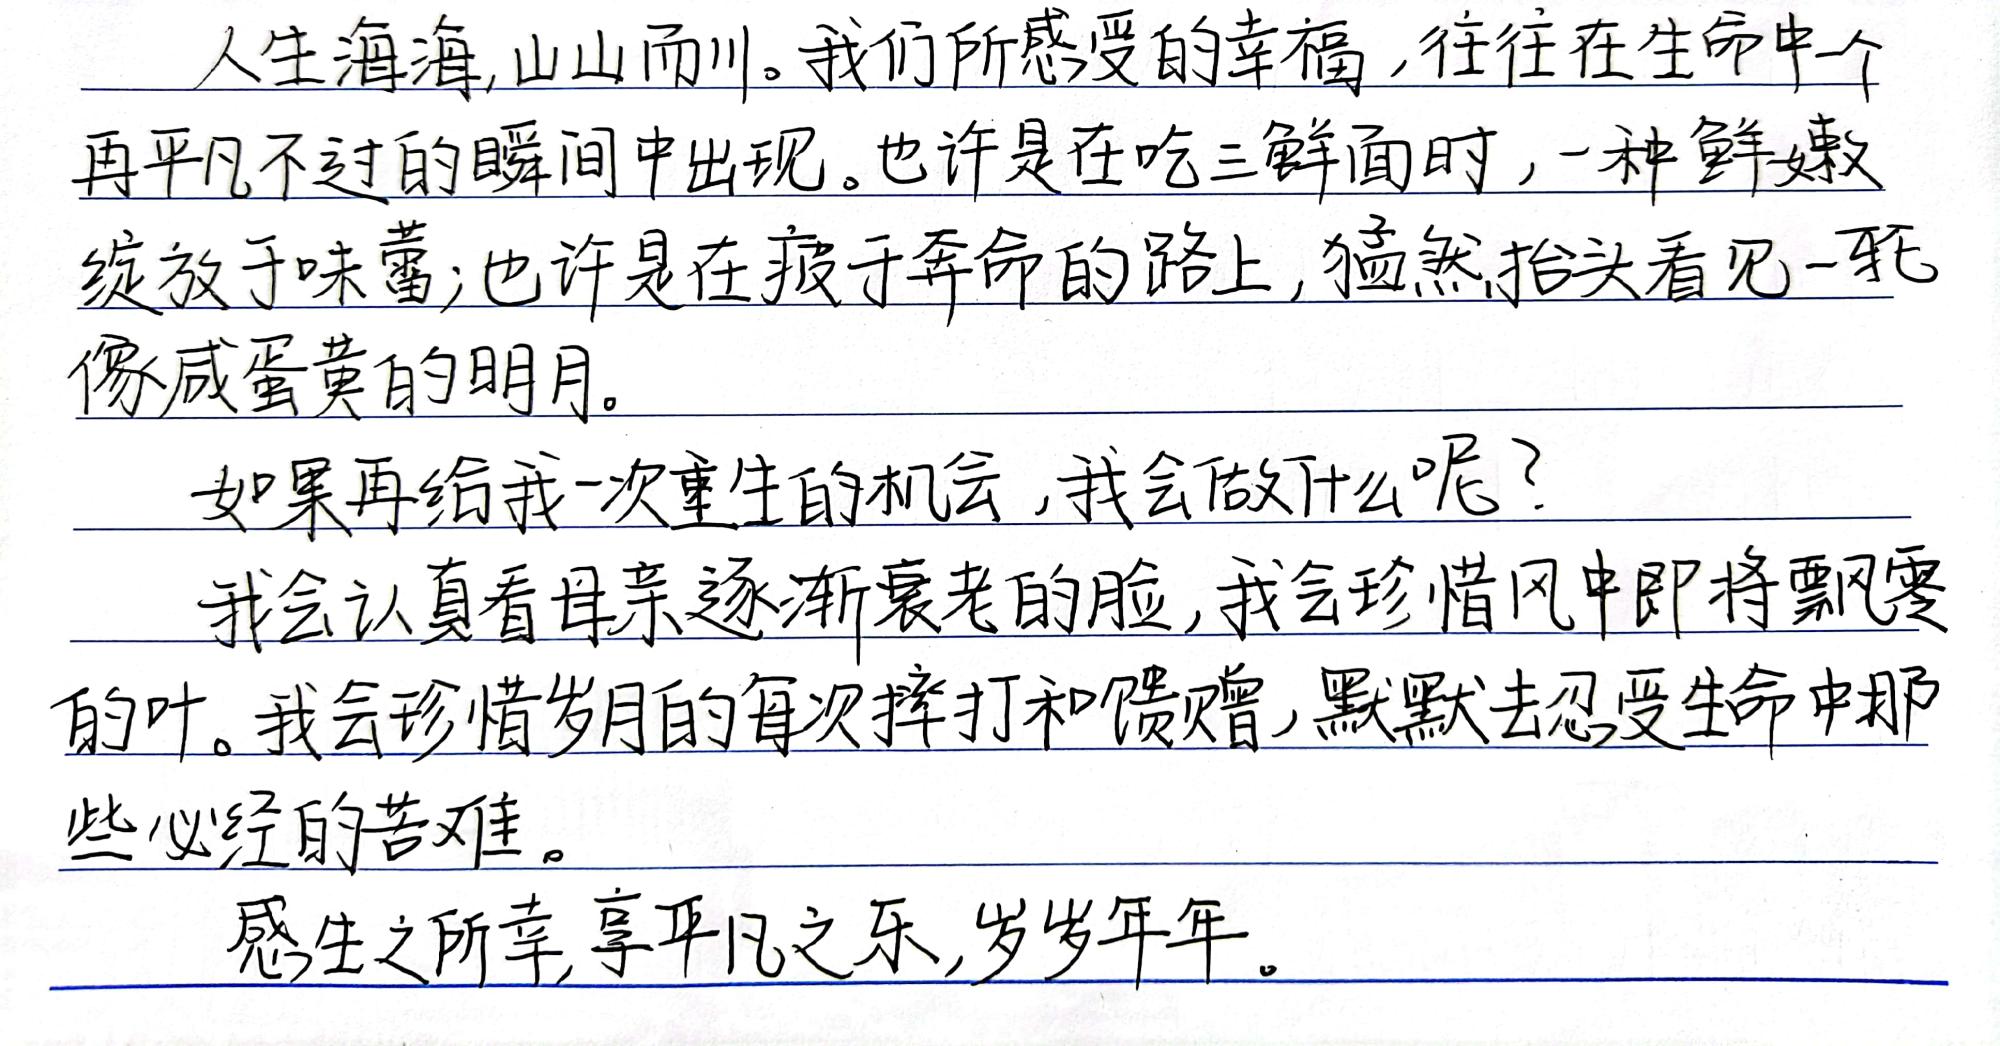 人生海海,山山而川。我们所感受的幸福,往往在生命中一个
再平凡不过的瞬间中出现。也许是在吃三鲜面时,一种鲜嫩
绽放于味蕾;也许是在疲于奔命的路上,猛然抬头看见一
像咸蛋黄的明月。
如果再给我一次重生的机会,我会做什么呢?
我会认真看母亲逐渐衰老的脸,我会珍惜风中即将飘零
的叶。我会珍惜岁月的每次摔打和馈赠,默默去忍受生命中那
些必经的苦难。
感生之所幸,享平凡之乐,岁岁年年。